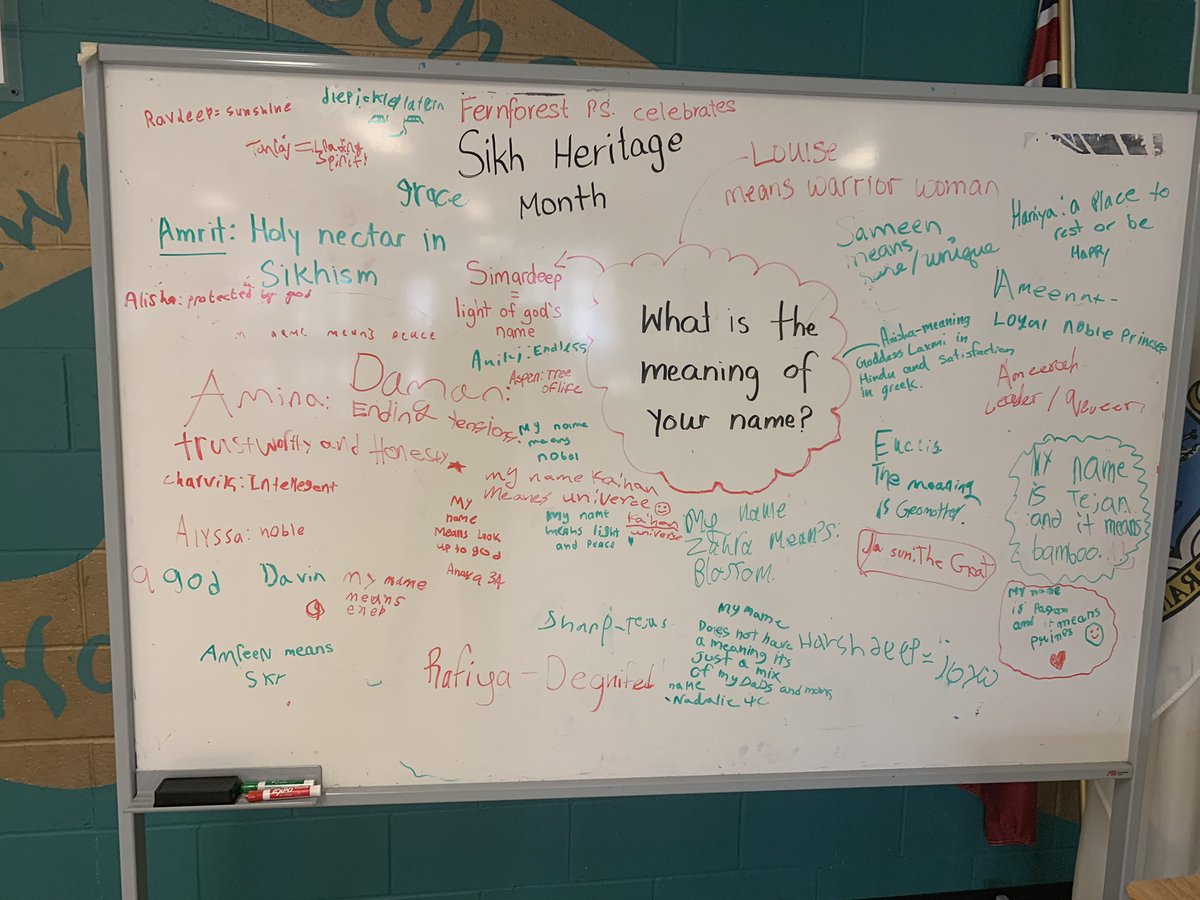 Fernforest P.S. celebrates
Sikh Heritage
Month
Ravdeep = sunshine
grace
Amrit: Holy nectar in
Sikhism
Alisha: protected by god
name means peace
Simardeep
=
light of god's
name
Louise
means warrior woman
Sameen
means
/unique
Haniya: a place to
rest or be
HAPPY
What is the
meaning of
your name?
Anisha-meaning
Goddass Laxmi in
Hindu and satisfaction
in greek.
Loyal noble Princess
Ameerah
Leader/
:Endless
Aspen: Tree
of life
Daman:
Ending
tension.
Amina:
and Honesty
Charvik: Intellegent
Alyssa: noble
My name
means
nobel
my name Kaihan
Means univerce
Kaihan
universe
My
name
Means Look
up to god
My name
means light
and peace
My name
Zahra Mean's.
Blossom.
Euclis
The meaning
is Geometter.
sun: The Great
My name
is Tejan
and it means
bamboo.
My name
is Pagam
and it means
a god
Davin
my name
means
Anfeen means
Rafiya - Degnifed
My name
Does not have
a meaning its
just a mix
of my Dads and moms
name
- Nadralie 4C
Harshdeep =